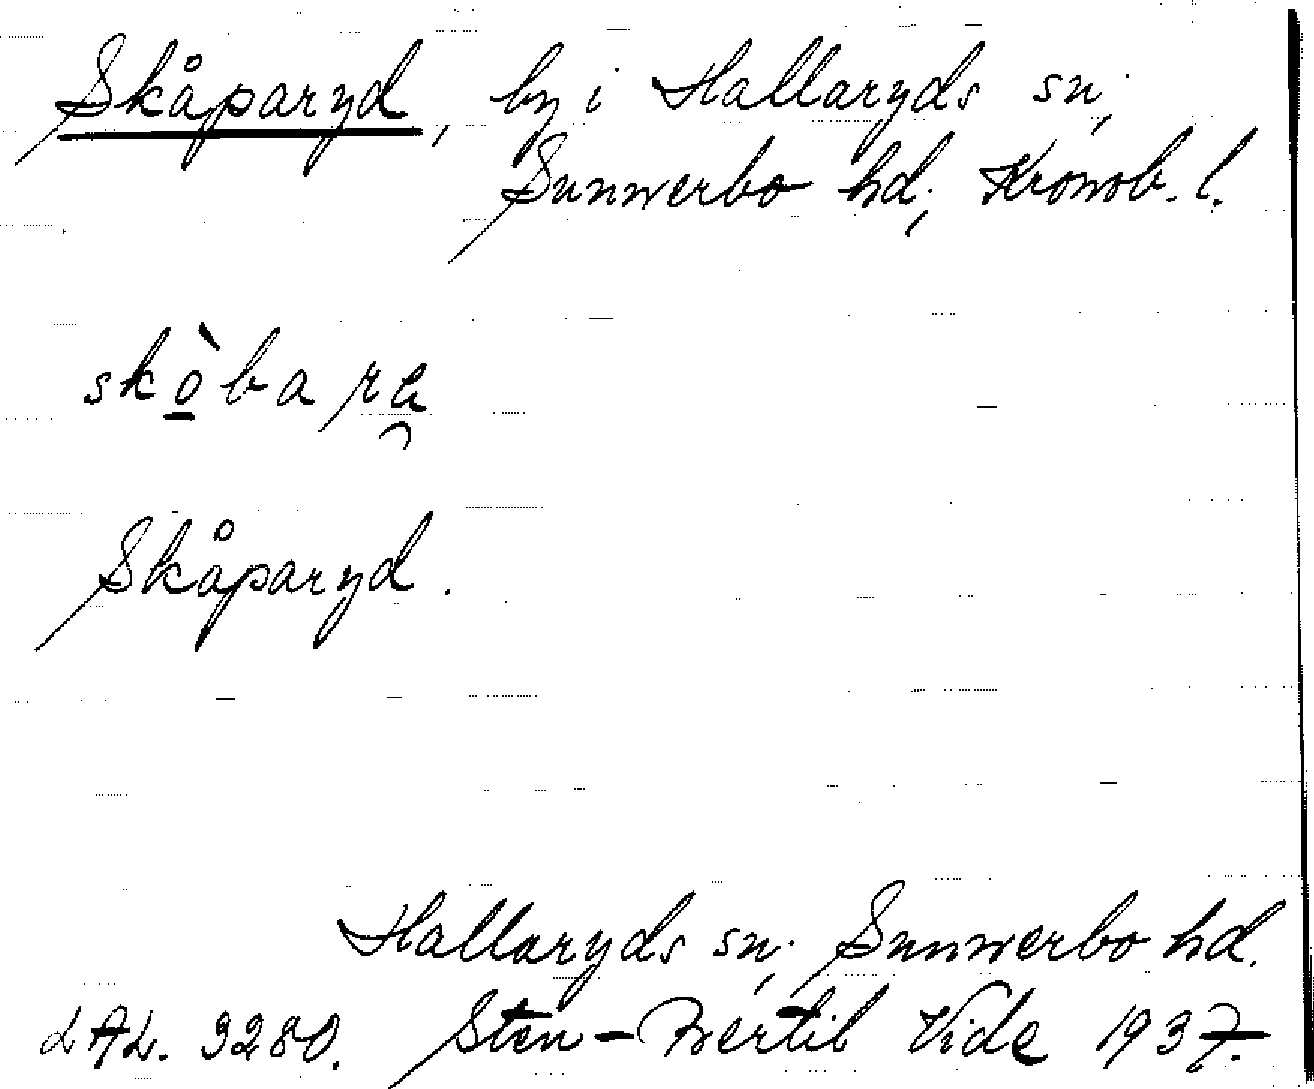 Skåparyd, by i Hallaryds sn,
Sunnerbo hd, Kronob. l.
skò̲bara
Skåparyd.
Hallaryds sn, Sunnerbo hd.
LAL. 3280. Sten-Bertil Vide 1937.